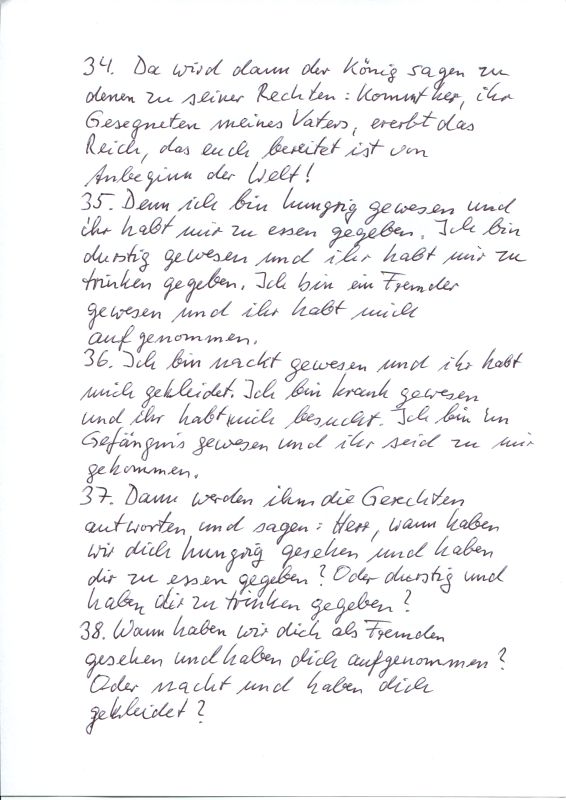 34. Da wird dann der König sagen zu
denen zu seiner Rechten: Kommt her, ihr
Gesegneten meines Vaters, ererbt das
Reich, das euch bereitet ist von
Anbeginn der Welt!
35. Denn ich bin hungrig gewesen und
ihr habt mir zu essen gegeben. Ich bin
durstig gewesen und ihr habt mir zu
trinken gegeben. Ich bin ein Fremder
gewesen und ihr habt mich
aufgenommen.
36. Ich bin nackt gewesen und ihr habt
mich gekleidet. Ich bin krank gewesen
und ihr habt mich besucht. Ich bin im
Gefängnis gewesen und ihr seid zu mir
gekommen.
37. Dann werden ihm die Gerechten
antworten und sagen: Herr, wann haben
wir dich hungrig gesehen und haben
dir zu essen gegeben? Oder durstig und
haben dir zu trinken gegeben?
38. Wann haben wir dich als Fremden
gesehen und haben dich aufgenommen?
Oder nackt und haben dich
gekleidet?